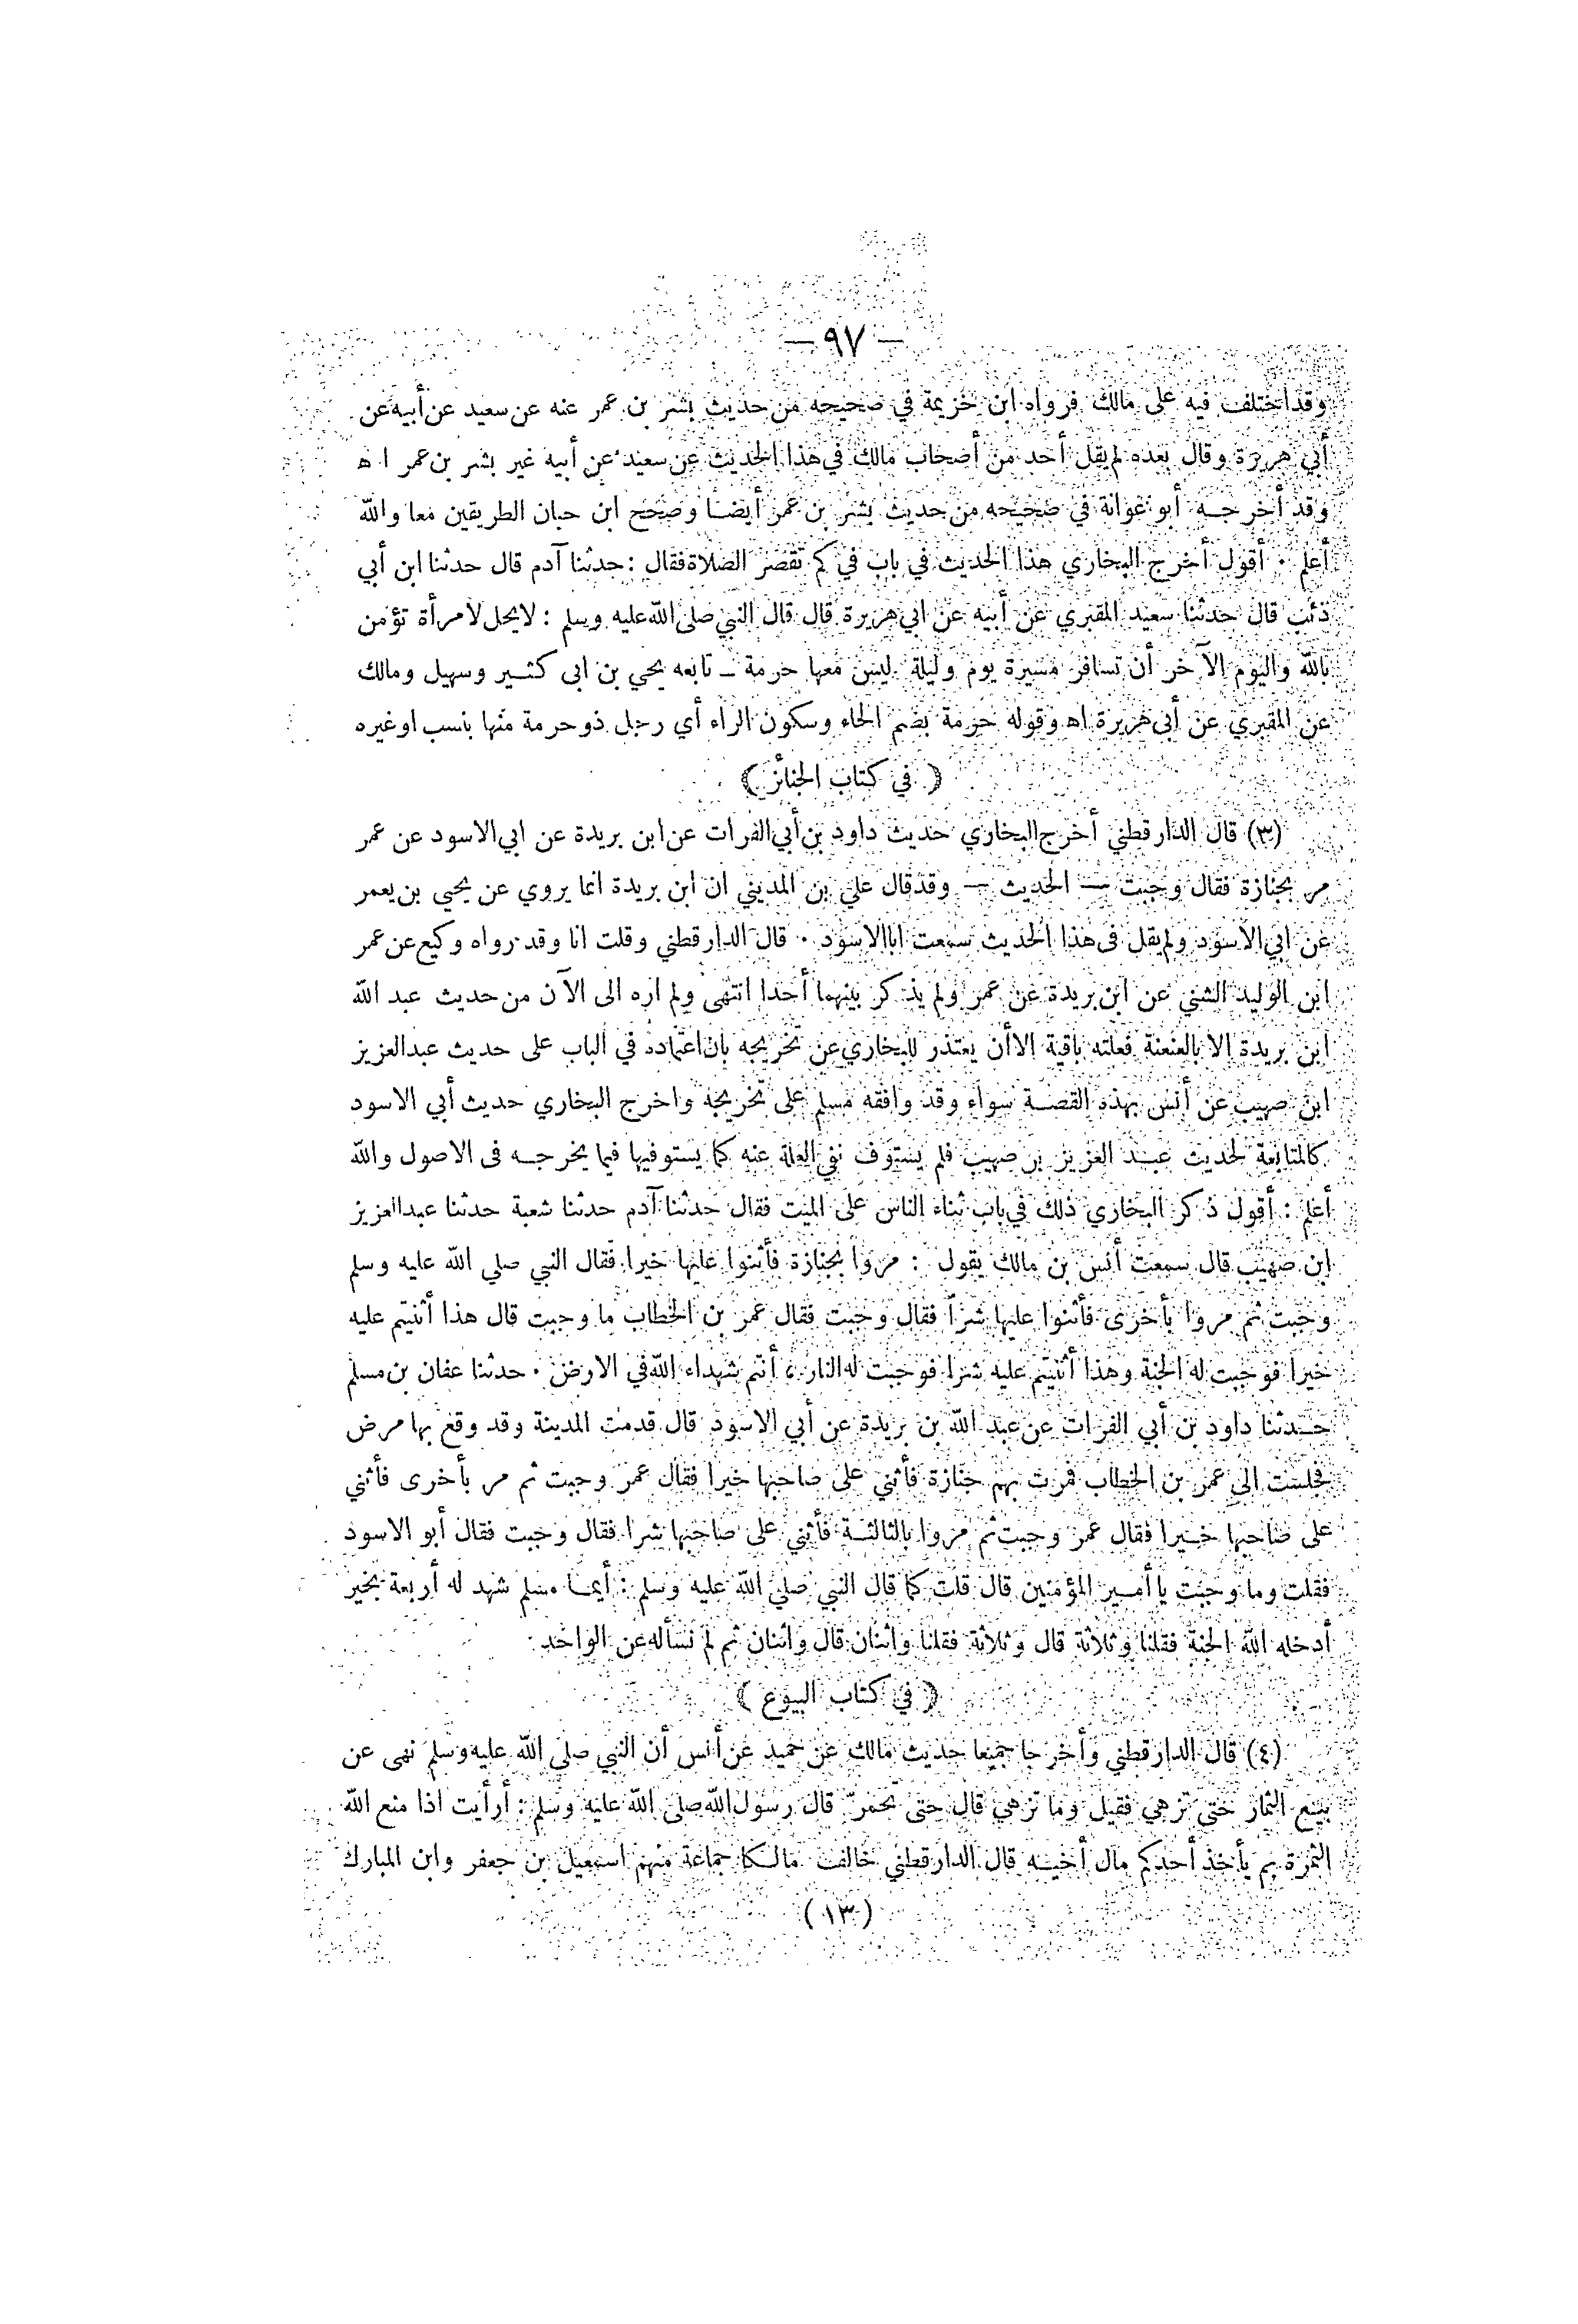 — ٩٧ —
وقد اختلف فيه على مالك فرواه ابن خزيمة في صحيحه من حديث بشر بن عمر عنه عن سعيد عن أبيه عن
أبي هريرة وقال بعده لم يقل أحد من أصحاب مالك في هذا الحديث عن سعيد عن أبيه غير بشر بن عمر ا ه
وقد أخرجه أبو عوانة في صحيحه من حديث بشر بن عمر أيضا وصحح ابن حبان الطريقين معا والله
أعلم . أقول أخرج البخاري هذا الحديث في باب في كم تقصر الصلاة فقال : حدثنا آدم قال حدثنا ابن أبي
ذئب قال حدثنا سعيد المقبري عن أبيه عن ابي هريرة قال قال النبي صلى الله عليه وسلم : لا يحل لامرأة تؤمن
بالله واليوم الآخر أن تسافر مسيرة يوم وليلة ليس معها حرمة – تابعه يحي بن ابى كثير وسهيل ومالك
عن المقبري عن أبى هريرة اه وقوله حرمة بضم الحاء وسكون الراء أي رجل ذو حرمة منها بنسب او غيره
( في كتاب الجنائز )
(٣) قال الدارقطني أخرج البخاري حديث داود بن أبي الفرات عن ابن بريدة عن ابي الاسود عن عمر
مر بجنازة فقال وجبت — الحديث — وقد قال علي بن المديني ان ابن بريدة انما يروي عن يحيى بن يعمر
عن ابي الاسود ولم يقل فى هذا الحديث سمعت ابا الاسود . قال الدارقطني وقلت انا وقد رواه وكيع عن عمر
ابن الوليد الشني عن ابن بريدة عن عمر ولم يذكر بينهما أحدا انتهى ولم اره الى الآن من حديث عبد الله
ابن بريدة إلا بالعنعنة فعلته باقية الا أن يعتذر للبخاري عن تخريجه بان اعتماده في الباب على حديث عبد العزيز
ابن صهيب عن أنس بهذه القصة سواء وقد وافقه مسلم على تخريجه واخرج البخاري حديث أبي الاسود
كالمتابعة لحديث عبد العزيز بن صهيب فلم يستوف نفي العلة عنه كما يستوفيها فيما يخرجه فى الاصول والله
أعلم : أقول ذكر البخاري ذلك في باب ثناء الناس على الميت فقال حدثنا آدم حدثنا شعبة حدثنا عبد العزيز
ابن صهيب قال سمعت أنس بن مالك يقول : مروا بجنازة فأثنوا عليها خيرا فقال النبي صلى الله عليه وسلم
وجبت ثم مروا بأخرى فأثنوا عليها شرا فقال وجبت فقال عمر بن الخطاب ما وجبت قال هذا أثنيتم عليه
خيرا فوجبت له الجنة وهذا أثنيتم عليه شرا فوجبت له النار ، أنتم شهداء الله في الارض . حدثنا عفان بن مسلم
حدثنا داود بن أبي الفرات عن عبد الله بن بريدة عن أبي الاسود قال قدمت المدينة وقد وقع بها مرض
فجلست الى عمر بن الخطاب فمرت بهم جنازة فأثني على صاحبها خيرا فقال عمر وجبت ثم مر بأخرى فأثني
على صاحبها خيرا فقال عمر وجبت ثم مروا بالثالثة فأثني على صاحبها شرا فقال وجبت فقال أبو الاسود
فقلت وما وجبت يا أمير المؤمنين قال قلت كما قال النبي صلى الله عليه وسلم : أيما مسلم شهد له أربعة بخير
أدخله الله الجنة فقلنا وثلاثة قال وثلاثة فقلنا واثنان قال واثنان ثم لم نسأله عن الواحد .
( في كتاب البيوع )
(٤) قال الدارقطني وأخرجا جميعا حديث مالك عن حميد عن أنس أن النبي صلى الله عليه وسلم نهى عن
بيع الثمار حتى تزهي فقيل وما تزهي قال حتى تحمر قال رسول الله صلى الله عليه وسلم : أرأيت اذا منع الله
الثمرة بم يأخذ أحدكم مال أخيه قال الدارقطني خالف مالكا جماعة منهم اسمعيل بن جعفر وابن المبارك
(١٣)